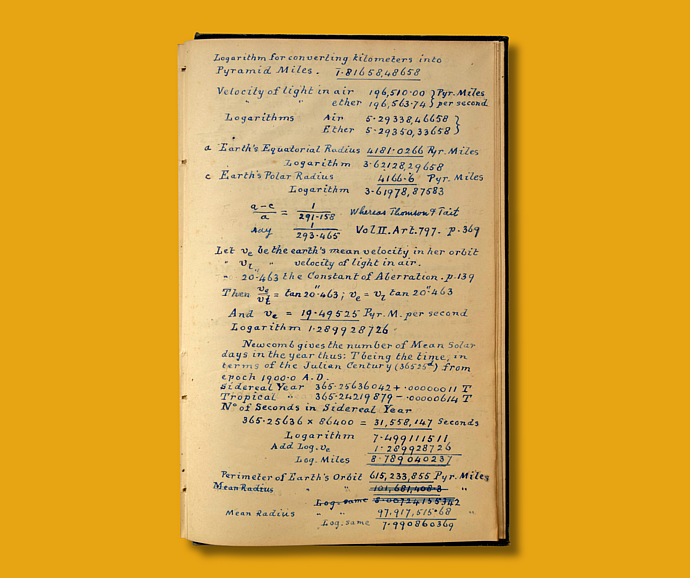 Logarithm for converting kilometers into
Pyramid Miles. 1̄·81658,48658
Velocity of light in air 196,510·00 } Pyr. Miles
" " ether 196,563·74 } per second
Logarithms Air 5·29338,46658 }
Ether 5·29350,33658 }
a Earth's Equatorial Radius 4181·0266 Pyr. Miles
Logarithm 3·62128,29658
c Earth's Polar Radius 4166·6 Pyr. Miles
Logarithm 3·61978,87583
(a-c)/a = 1/291·158 Whereas Thomson & Tait
say 1/293·465 Vol II. Art. 797. p. 369
Let vₑ be the earth's mean velocity in her orbit
" vₗ " " velocity of light in air.
" 20·463 the Constant of Aberration. p. 139
Then vₑ/vₗ = tan 20"·463; vₑ = vₗ tan 20"·463
And vₑ = 19·49525 Pyr. M. per second
Logarithm 1·289928726
Newcomb gives the number of Mean Solar
days in the year thus: T being the time, in
terms of the Julian Century (36525ᵈ) from
epoch 1900·0 A.D.
Sidereal Year 365·25636042 + ·00000011 T
Tropical " 365·24219879 – ·00000614 T
Nº of Seconds in Sidereal Year
365·25636 × 86400 = 31,558,147 Seconds
Logarithm 7·499111511
Add Log. vₑ 1·289928726
Log. Miles 8·789040237
Perimeter of Earth's Orbit 615,233,855 Pyr. Miles
Mean Radius " " 101,681,408·3 "
Log. same 8·00724155342
Mean Radius " " 97,917,515·68 "
Log. same 7·990860369